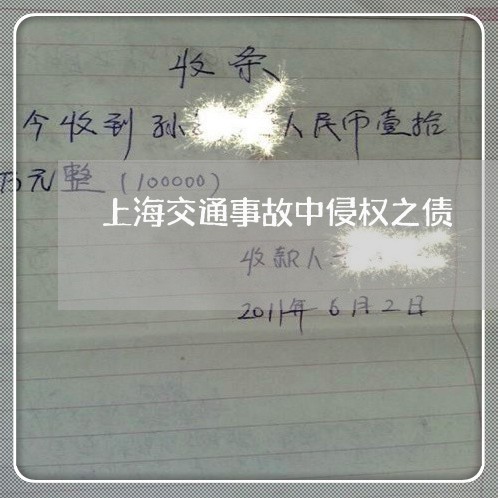 收条
今收到孙 人民币壹拾
万元整(100000)
上海交通事故中侵权之债
收款人
2011年6月2日